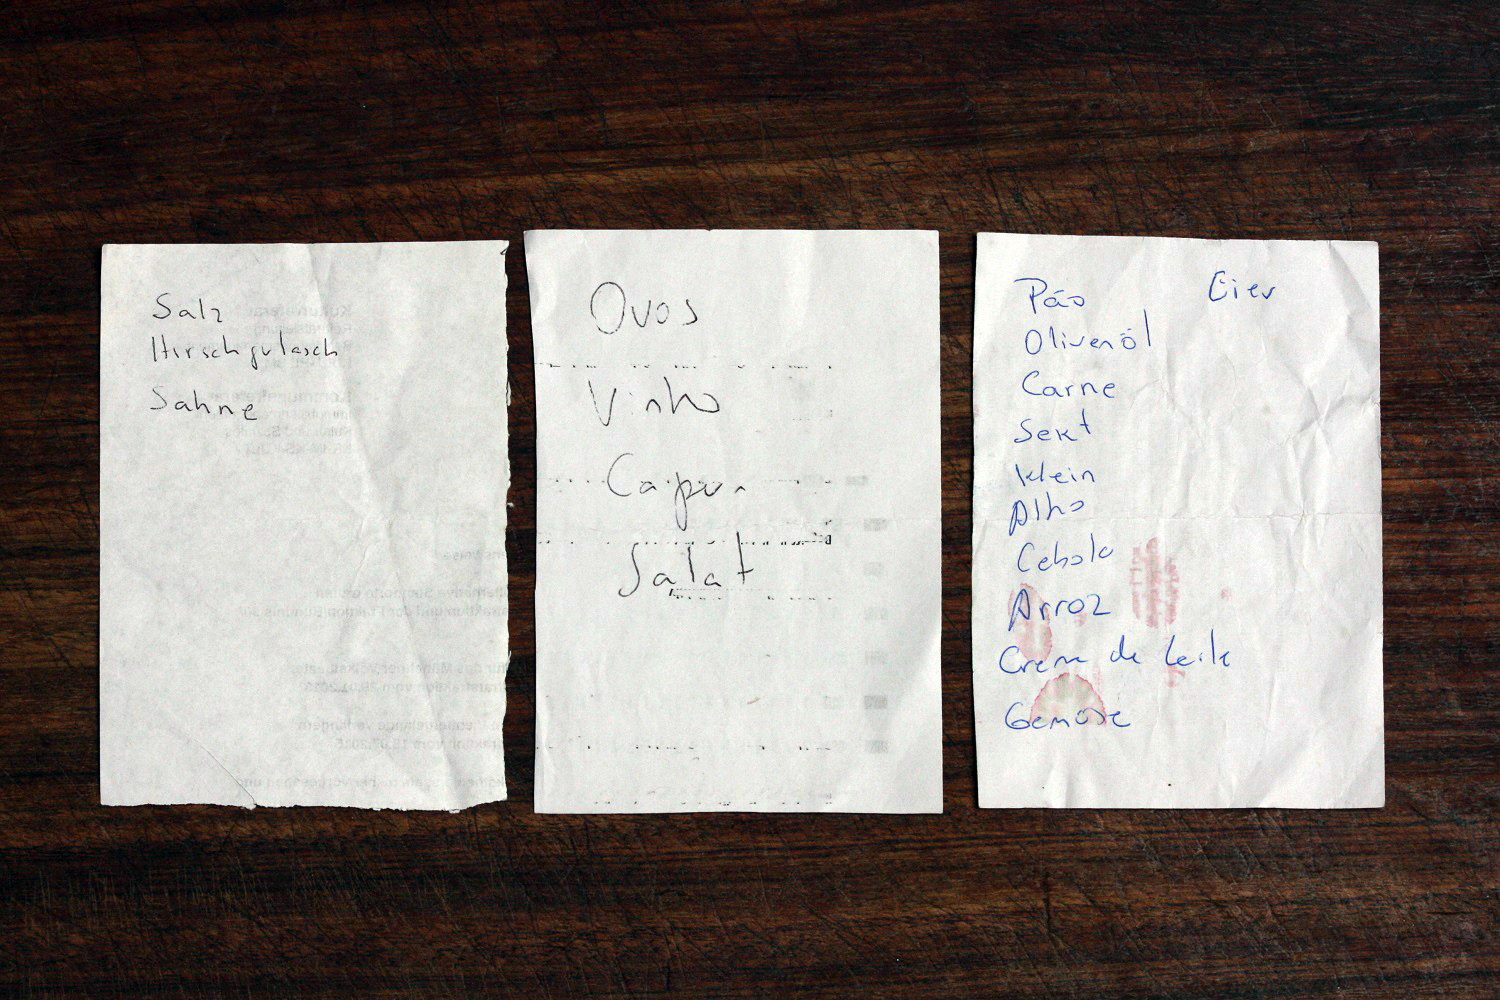 Salz
Hirschgulasch
Sahne
Ovos
Vinho
Salat
Pão
Eier
Olivenöl
Carne
Sekt
klein
Alho
Cebola
Arroz
Creme de Leite
Gemüse